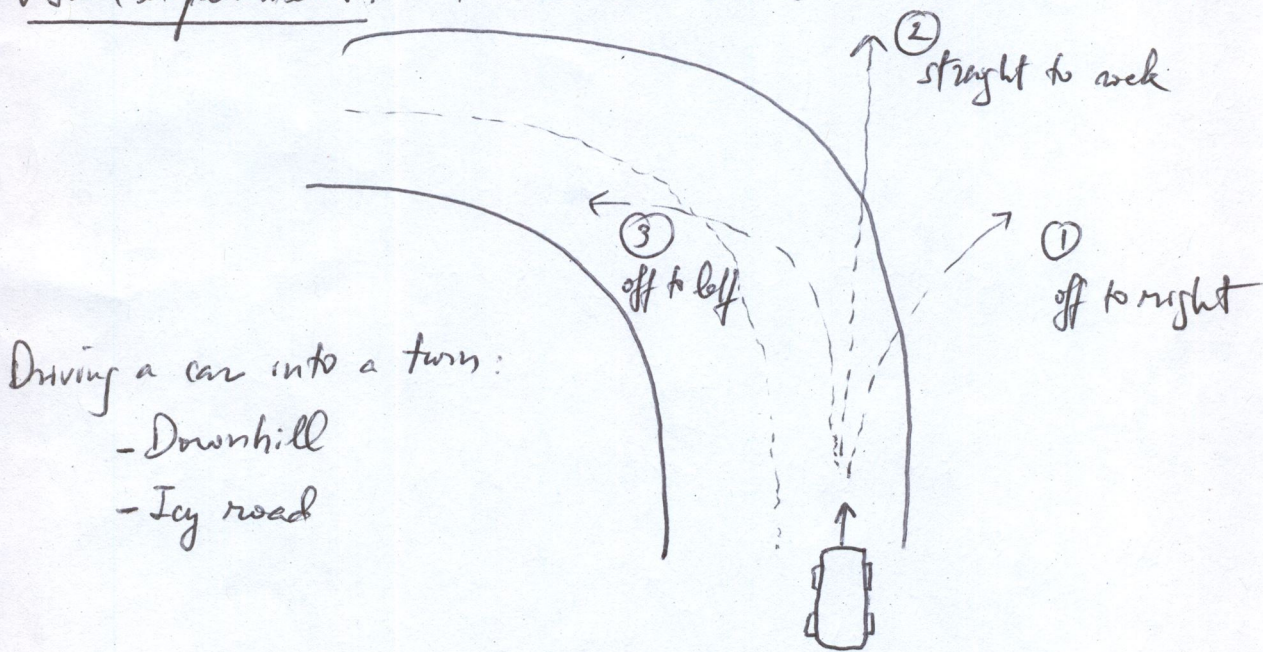 ②
straight to
①
off to right
③
off to left
Driving a car into a turn:
- Downhill
- Icy road